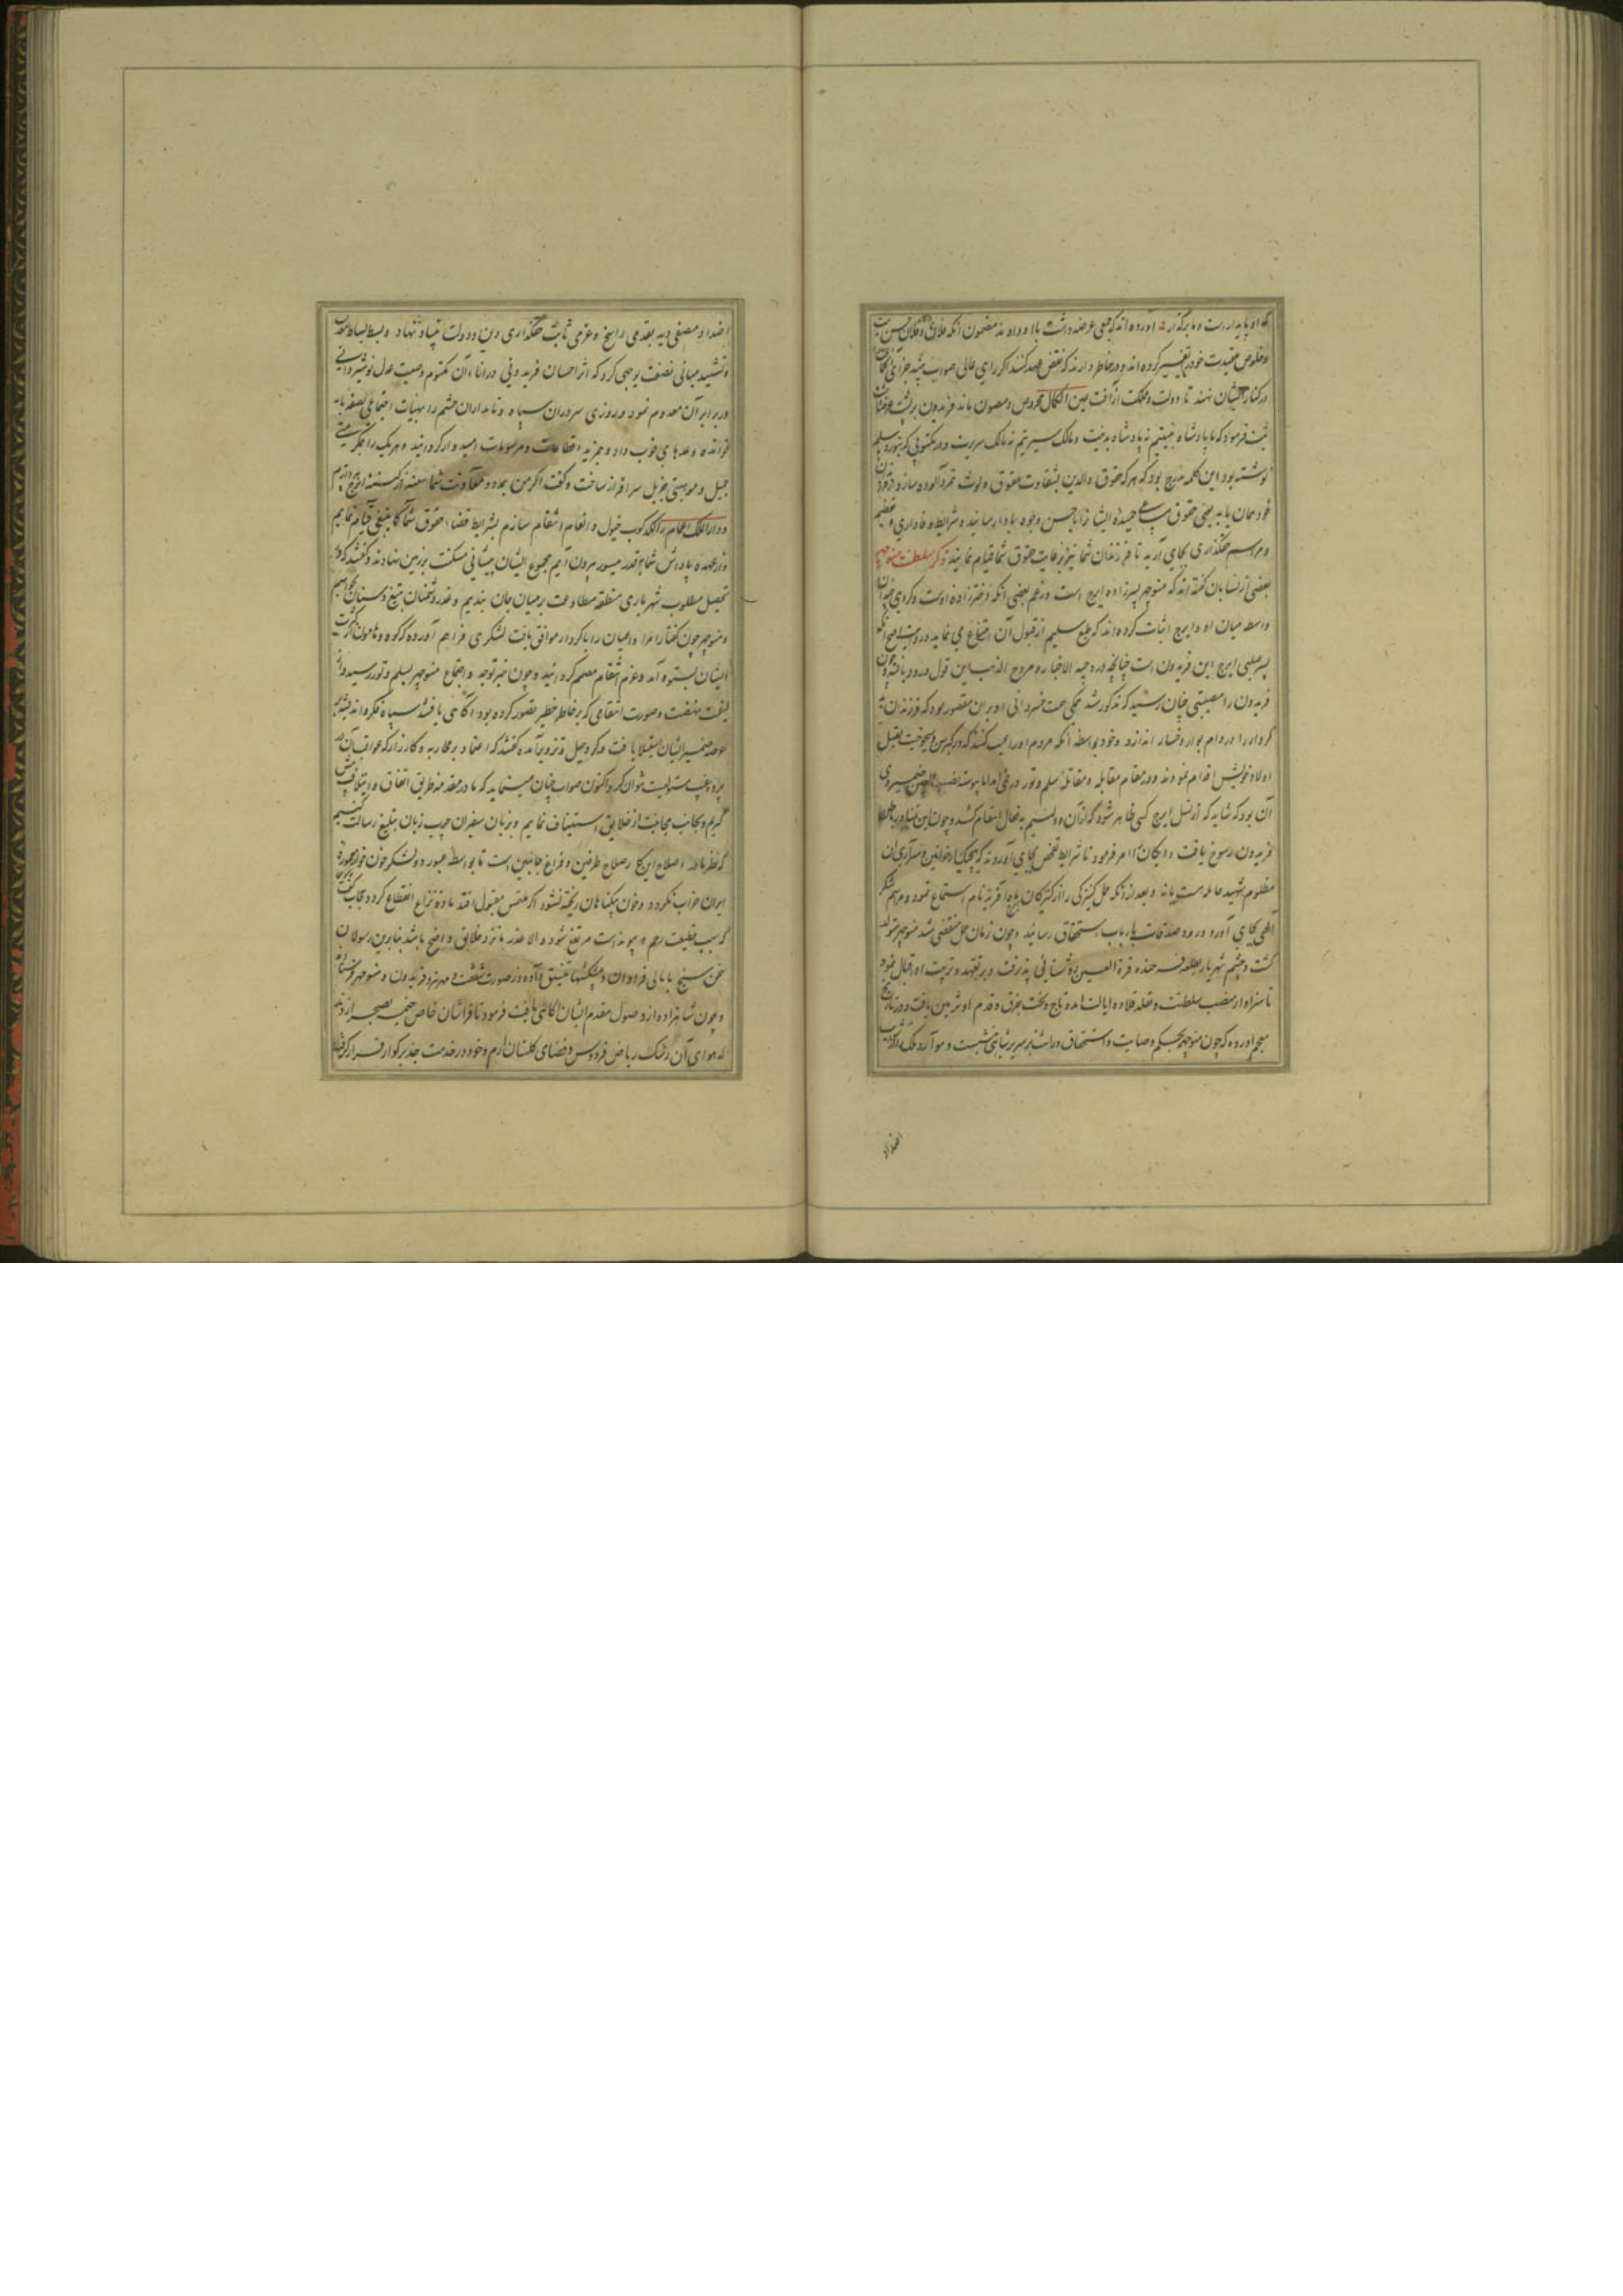 که او پایدارست و ما برگذار آورده اند که جمعی عرضه داشت باو دادند مضمون آنکه فلان و فلان حسن نیت
و خلوص عقیدت خود را تغییر کرده اند و در خاطر دارند که نقض عهد کنند اگر رای عالی صواب بیند جزای
در کنار ایشان نهند تا دولت و مملکت از آفت عین الکمال محروس و مصون ماند فریدون بر پشت عرضه داشت
ثبت فرمود که ما پادشاه به نیتیم نه پادشاه به نیت و مالک سیرتیم نه مالک سریرت و در مکتوبی که بتور و سلم
نوشته بود این کلمه مدرج بود که هر که حقوق والدین بشقاوت عقوق ولوث تمرد آلوده سازد از فرزندان
خود همان یابد یعنی حقوق مساعی حمیده ایشانرا باحسن وجوه بادا رسانید و شرایط وفاداری و تعظیم
و مراسم حقگذاری بجای آرید تا فرزندان شما نیز برعایت حقوق شما قیام نمایند ذکر سلطنت منوچهر
بعضی از نسابان گفته اند که منوچهر پسرزاده ایرج است و زعم بعضی آنکه دخترزاده اوست و گروهی چندان
واسطه میان او و ایرج اثبات کرده اند که طبع سلیم از قبول آن امتناع می نماید و روایت اصح آنکه
پسر صلبی ایرج ابن فریدون است چنانچه در وجیه الاخبار و مروج الذهب این قول ورود یافته و چون
فریدون را مصیبتی چنان رسید که مذکور شد همگی همت خسروانی او بران مقصور بود که فرزندان بد
کردار را در دام بوار و خسار اندازد و خود بواسطه آنکه مردم او را عیب کنند که در کبر سن و هیچوخت بقتل
اولاد خویش اقدام نمود نه در مقام مقابله و مقاتله سلم و تور در می آمد اما پیوسته نصب العین ضمیر وی
آن بود که شاید که از نسل ایرج کسی ظاهر شود که ازان دو لئیم بدفعال انتقام کشد و چون این تمنا در خاطر
فریدون رسوخ یافت امر فرمود تا شرایط تفحص بجای آوردند که هیچیک از خواتین و سراری آن
مظلوم شهید حامله هست یا نه و بعد از آنکه حمل کنیزکی را از کنیزکان ماه آفرید نام استماع نمود و مراسم شکر
الهی بجای آورد و صدقات بارباب استحقاق رسانید و چون زمان حمل منقضی شد منوچهر متولد
گشت و چشم شهریار بطلعت فرخنده قرة العین روشنائی پذیرفت و بر تعهد و تربیت او اقبال نمود
تا سزاوار منصب سلطنت و تقلد قلاده ایالت آمده تاج و تخت بفرق و قدم او تزیین یافت و در تاریخ
معجم آورده که چون منوچهر بحکم وصایت و استحقاق وراثت بر سریر شاهی نشست و موارد ملک از شوایب
اضداد
اضداد مصفی دید بقدمی راسخ و عزمی ثابت حقگذاری دین و دولت بنیاد نهاد و بسط بساط معدلت
و تشیید مبانی نصفت بوجهی کرد که اثر احسان فریدونی در اثناء آن مکتوم و صیت عدل نوشیروانی
در برابر آن معدوم نمود و روزی سروران سپاه و نامداران حشم را بهیأت اجتماعی بصفه بار
خوانده وعدهای خوب داد و بمزید اقطاعات و مرسومات امیدوار گردانید و هر یک را بکرامتی
جمیل و موهبتی جزیل سرافراز ساخت و گفت اگر من بمدد و معاونت شما سفینه از کینه ایرج پردازم
و دار الملک اعمام را لگدکوب خیول انتقام سازم بشرایط قضاء حقوق شما کما ینبغی قیام نمایم
و از عهده پاداش شما بقدر میسور بیرون آیم مجموع ایشان پیشانی مسکنت بر زمین نهادند و گفتند که ما
تحصیل مطلوب شهریاری منطقه مطاوعت بر میان جان بندیم و عذر دشمنان بتیغ و سنان بخواهیم
و منوچهر چون گفتار امرا و اعیان را با کردار موافق یافت لشکری فراهم آورد که کوه و هامون از کثرت
ایشان بستوه آمد و عزم انتقام مصمم گردانید و چون خبر توجه و اجتماع منوچهر بسلم و تور رسید و از
کیفیت نهضت و صورت انتقامی که بر خاطر خطیر تصور کرده بود آگاهی یافتند سپاه فکر و اندیشه بر
عرصه ضمیر ایشان استیلا یافت و مکر و حیل و تزویر آمده گفتند که اعتماد بر محاربه و کارزار که عواقب آن در
پرده غیب مستور است نتوان کرد اکنون صواب چنان مینماید که ما در مقدمه طریق اتفاق و ایتلاف پیش
گیریم و بجانب مجانبت از خلایق استیناف نمایم و بزبان سفیران چرب زبان تبلیغ رسالت کنیم
که نظر ما در اصلاح این کار صلاح طرفین و فراغ جانبین است تا بواسطه عبور دو لشکر خون خوار معموره
ایران خراب نگردد و خون بیگناهان ریخته نشود اگر ملتمس مقبول افتد ماده نزاع انقطاع گردد
که سبب قطیعت رحم و پیوند است مرتفع شود و الا عذر ما نزد خلایق واضح باشد بنابرین رسولان
سخن سنج با مالی فراوان و پیشکشهای در صورت شفقت و مهر نزد فریدون و منوچهر فرستادند
و چون شاهزاده از وصول مقدم ایشان آگاهی یافت فرمود تا فراشان خاص خیمه بصحرا زدند
که هوای آن رشک ریاض فردوس و فضای گلستان ارم و خود در خدمت جد بزرگوار قرار گرفت